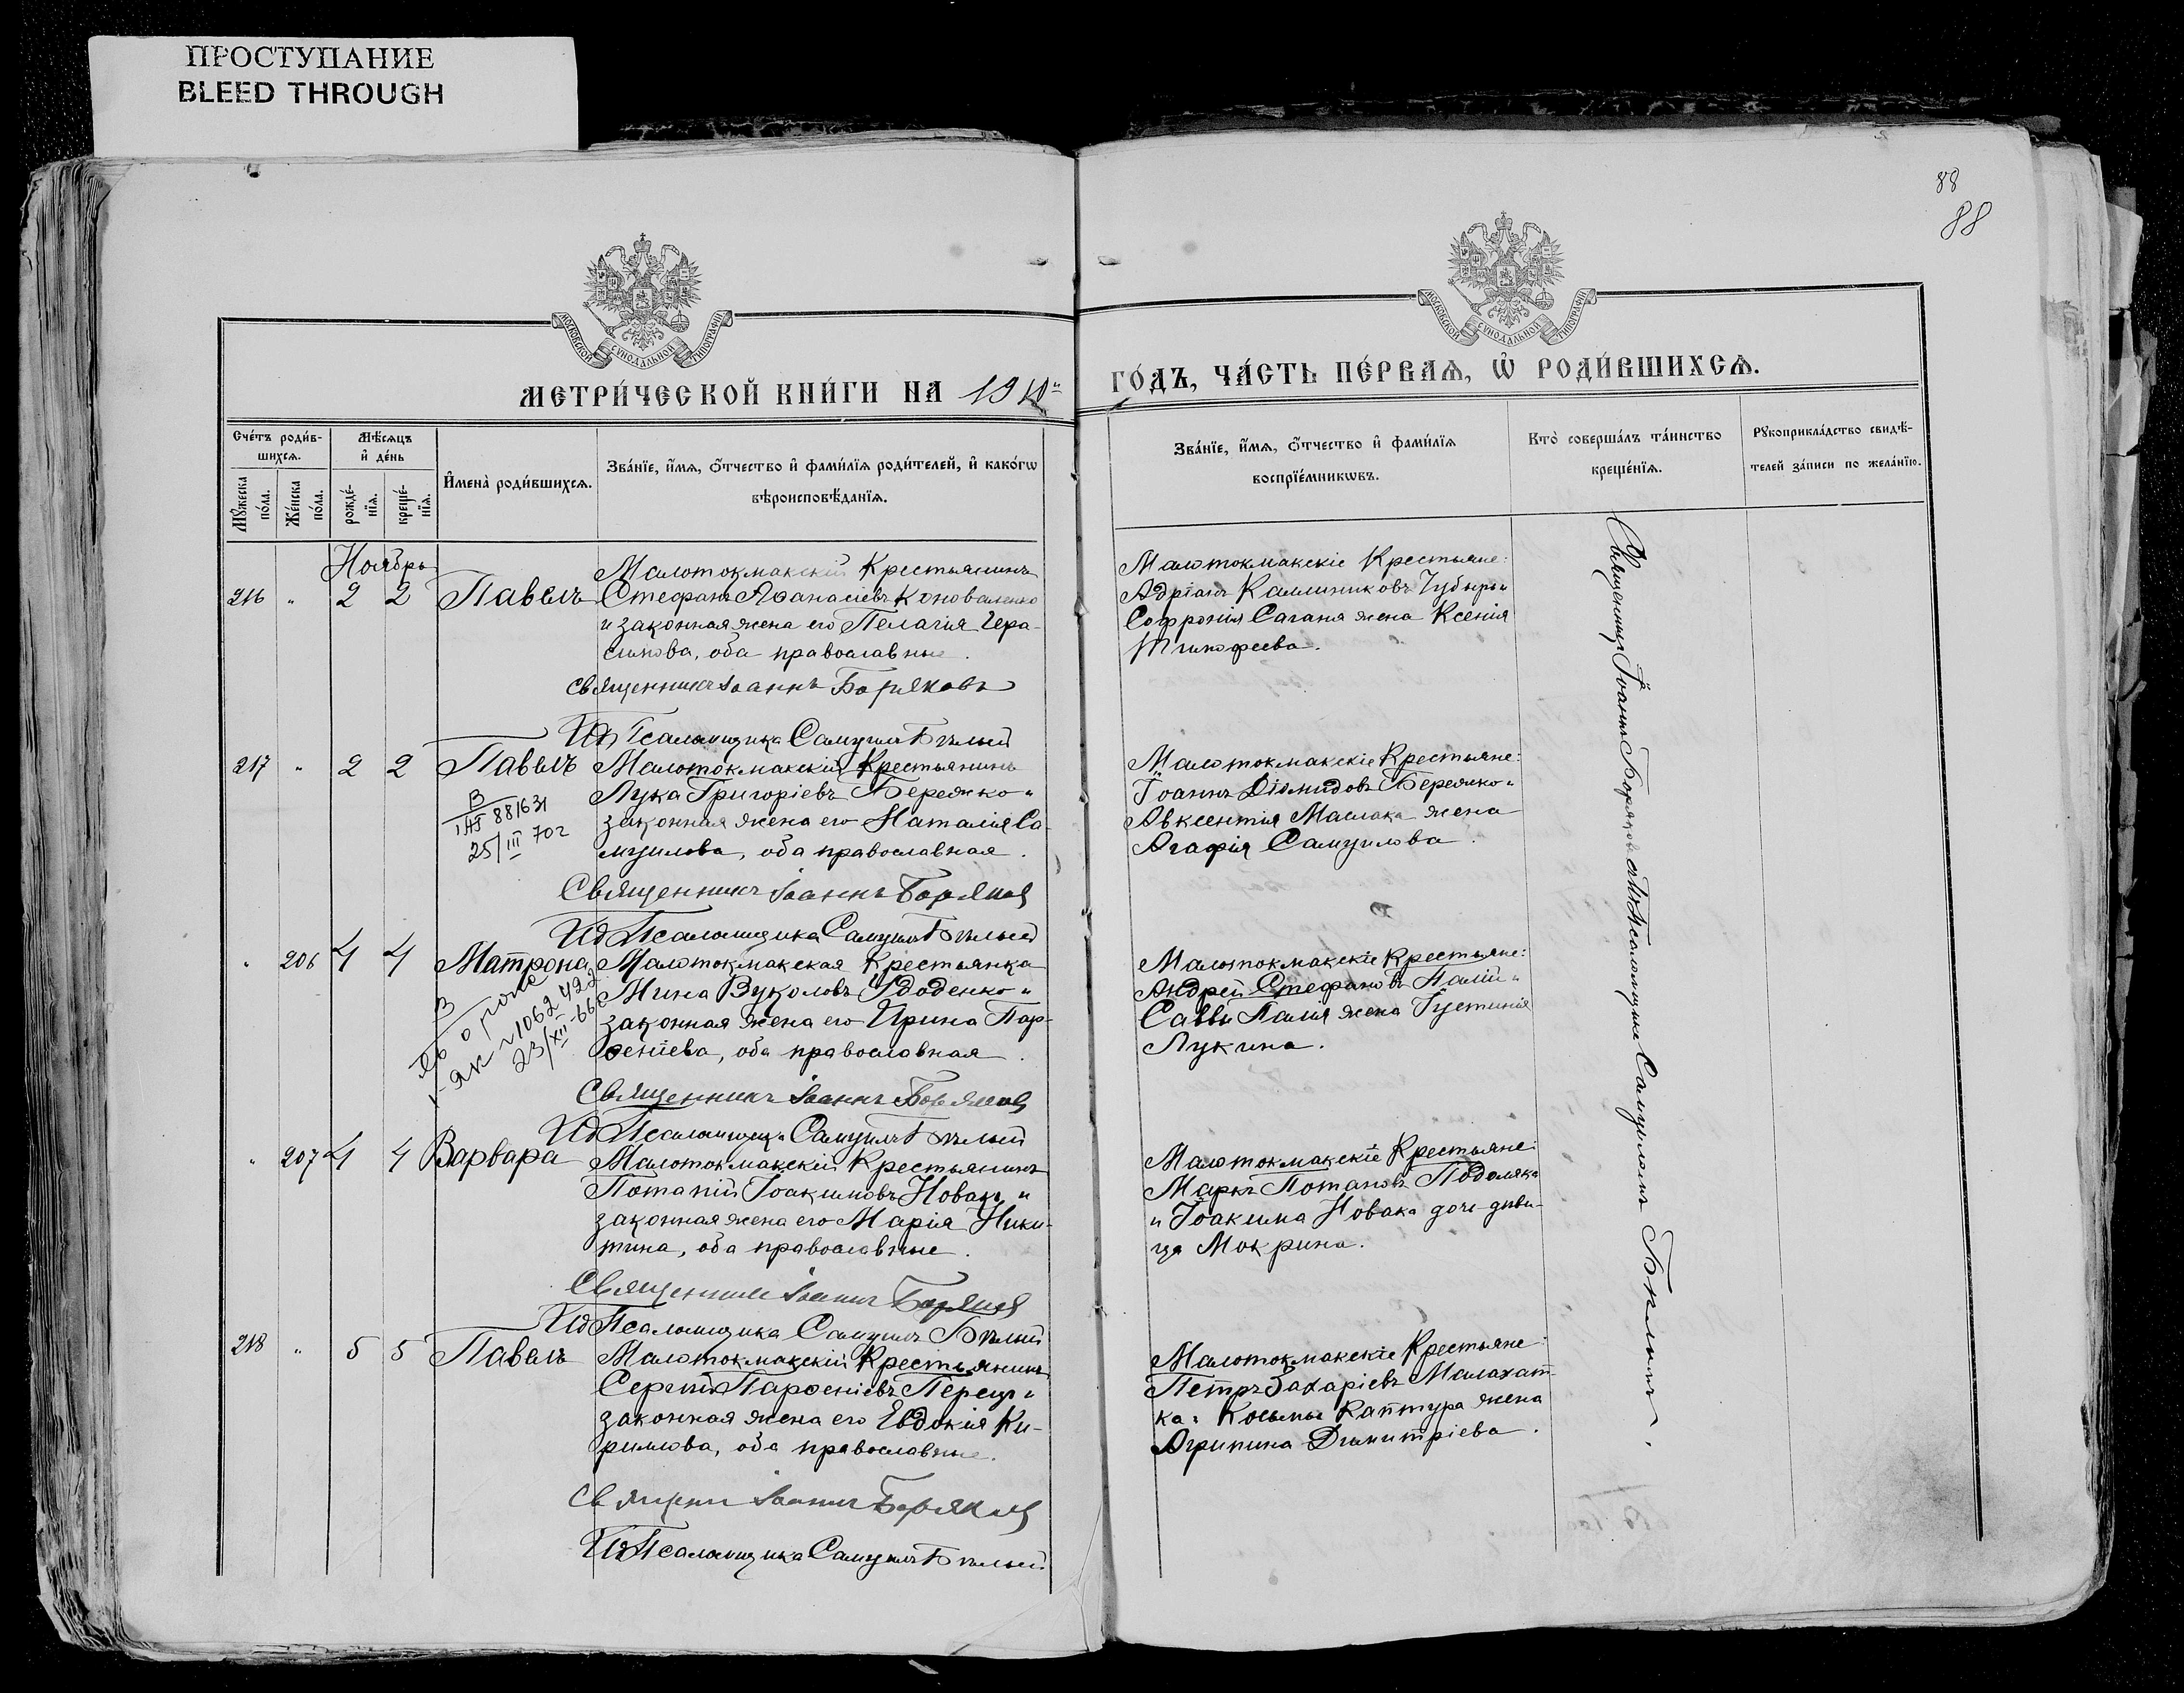 ПРОСТУПАНИЕ
BLEED THROUGH
88
88
МОСКОВСКОЙ СѴНОДАЛЬНОЙ ТИПОГРАФІИ
МОСКОВСКОЙ СѴНОДАЛЬНОЙ ТИПОГРАФІИ
МЕТРИ́ЧЕСКОЙ КНИ́ГИ НА 1910
ГО́ДЪ, ЧА́СТЬ ПЕ́РВАѦ, Ѡ҆ РОДИ́ВШИХСѦ.
Сче́тъ роди́в-
шихсѧ.
Мꙋ́жеска по́ла.
Же́нска по́ла.
Мѣ́сѧцъ
и҆ де́нь
рожде́-
нїѧ.
креще́-
нїѧ.
И҆мена̀ роди́вшихсѧ.
Зва́нїе, и҆́мѧ, ѻ҆́тчество и҆ фами́лїѧ роди́телей, и҆ како́гѡ
вѣроисповѣ́данїѧ.
Зва́нїе, и҆́мѧ, ѻ҆́тчество и҆ фами́лїѧ
воспрїе́мникѡвъ.
Кто̀ соверша́лъ та́инство
креще́нїѧ.
Рꙋкоприкла́дство свидѣ́-
телей за́писи по жела́нїю.
Ноябрь
216 " 2 2 Павелъ
Малотокмакскій Крестьянинъ
Стефанъ Аѳанасіевъ Коноваленко
и законная жена его Пелагія Гера-
симова, оба православные.
Священникъ Іоаннъ Боряковъ
Ид Псаломщика Самуилъ Бѣлый
Малотокмакскіе Крестьяне:
Адріанъ Каллиниковъ Чубырь и
Софронія Сагана жена Ксенія
Тимофеева.
217 " 2 2 Павелъ
В
881631
25/III 70г
Малотокмакскій Крестьянинъ
Лука Григоріевъ Бережко и
законная жена его Наталія Са-
муилова, оба православная.
Священникъ Іоаннъ Боряковъ
Ид Псаломщика Самуилъ Бѣлый
Малотокмакскіе Крестьяне:
Іоаннъ Діомидовъ Бережко и
Авксентія Маслака жена
Агафія Самуилова.
" 206 4 4 Матрона
В
1062422
23/XII-66
Малотокмакская Крестьянка
Мина Вуколовъ Удоденко и
законная жена его Ирина Пар-
ѳеніева, оба православная.
Священникъ Іоаннъ Боряковъ
Ид Псаломщика Самуилъ Бѣлый
Малотокмакскіе Крестьяне:
Андрей Стефановъ Палій и
Саввы Палія жена Іустинія
Лукина.
" 207 4 4 Варвара
Малотокмакскій Крестьянинъ
Потапій Іоакимовъ Новакъ и
законная жена его Марія Ники-
тина, оба православные.
Священникъ Іоаннъ Боряковъ
Ид Псаломщика Самуилъ Бѣлый
Малотокмакскіе Крестьяне:
Маркъ Потаповъ Подоляка
и Іоакима Новака дочь-дѣви-
ца Мокрина.
218 " 5 5 Павелъ
Малотокмакскій Крестьянинъ
Сергій Парѳеніевъ Перецъ и
законная жена его Евдокія Ки-
риллова, оба православные.
Священникъ Іоаннъ Боряковъ
Ид Псаломщика Самуилъ Бѣлый
Малотокмакскіе Крестьяне:
Петръ Захаріевъ Малахат-
ка и Косьмы Каптура жена
Агрипина Димитріева.
Священникъ Іоаннъ Боряковъ съ Псаломщикомъ Самуиломъ Бѣлымъ.